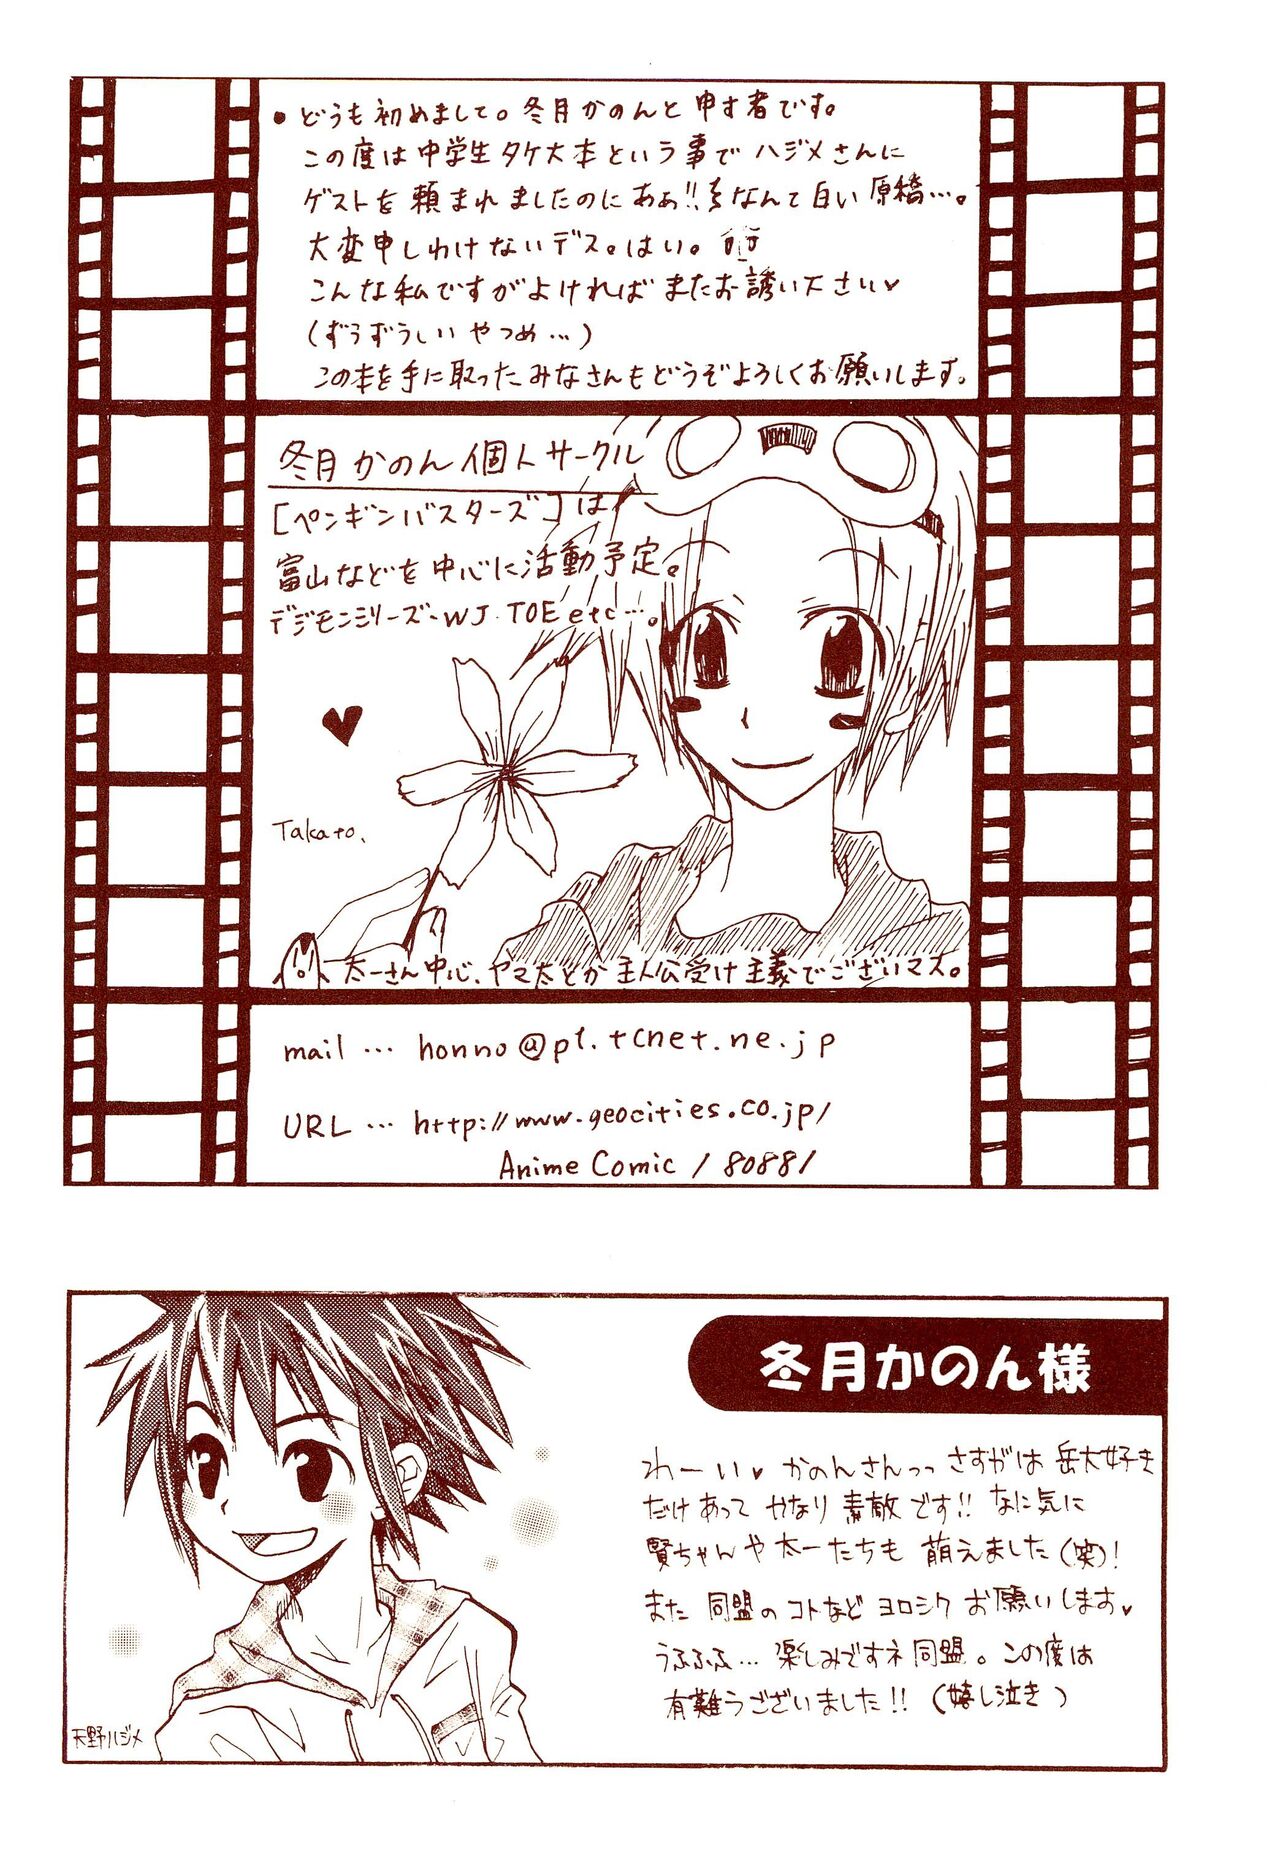 • どうも初めまして。冬月かのんと申す者です。
この度は中学生タケ大本という事でハジメさんに
ゲストを頼まれましたのにあぁ!!なんて白い原稿…。
大変申しわけないデス。はい。
こんな私ですがよければまたお誘い下さい♥
(ずうずうしいやつめ…)
この本を手に取ったみなさんもどうぞよろしくお願いします。
冬月かのん個人サークル
[ペンギンバスターズ]は
富山などを中心に活動予定。
デジモンシリーズ・WJ・TOE etc…。
♥
Takato.
太一さん中心、ヤマ太とか主人公受け主義でございマス。
mail … honno@p1.tcnet.ne.jp
URL … http://www.geocities.co.jp/
AnimeComic/80881
冬月かのん様
わーい♥かのんさんっっさすがは岳太好き
だけあってかなり素敵です!!なに気に
賢ちゃんや太一たちも萌えました(笑)!
また同盟のコトなどヨロシクお願いします♥
うふふふ…楽しみですネ同盟。この度は
有難うございました!!(嬉し泣き)
天野ハジメ